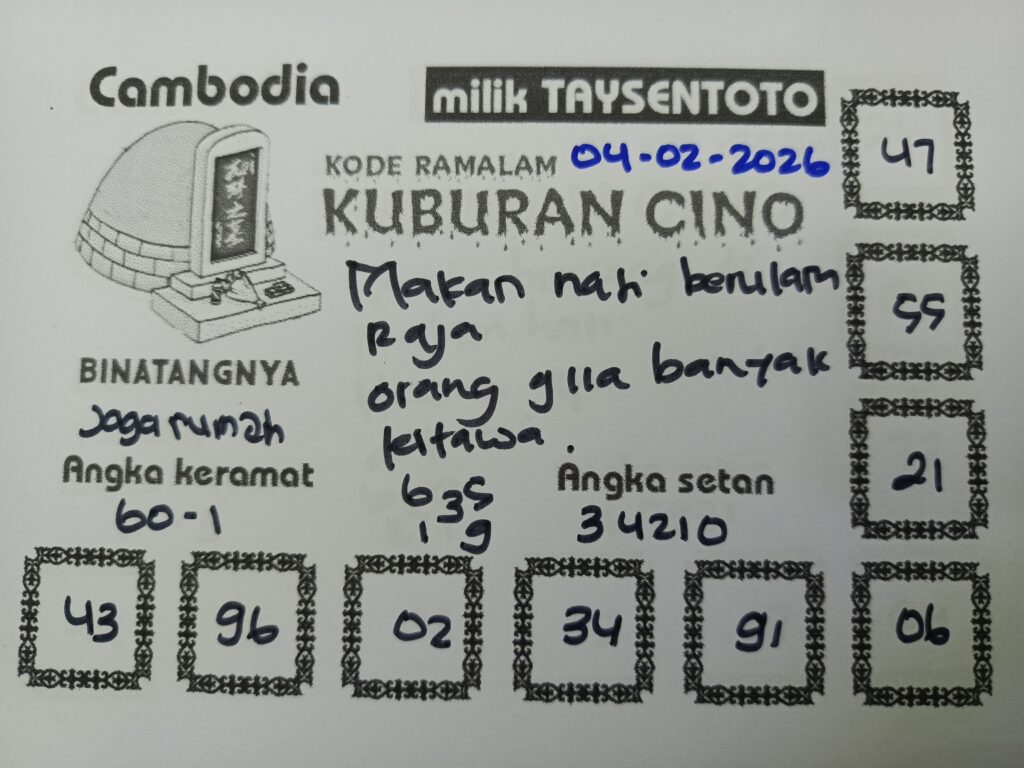 Cambodia
milik TAYSENTOTO
KODE RAMALAM 04-02-2026
KUBURAN CINO
Makan nasi berulam
Raja
orang gila banyak
ketawa.
BINATANGNYA
Jaga rumah
Angka keramat
60-1
6 3 5
1 9
Angka setan
3 4210
47
55
21
43
96
02
34
91
06